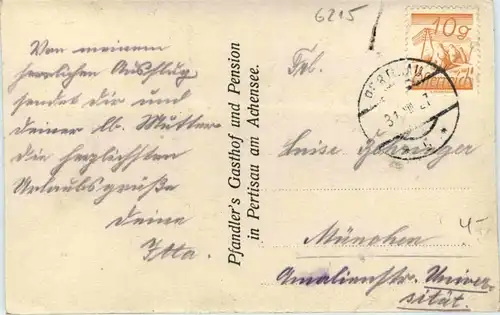 6215
Von meinem
herrlichen Ausflug
sendet Dir und
deiner lb. Mutter
die herzlichsten
Urlaubsgrüße
Deine
Itta.
Pfandler's Gasthof und Pension
in Pertisau am Achensee.
10g
31 VIII 27
Frl.
Luise
München
Amalienstr. Univer-
sität.
4-